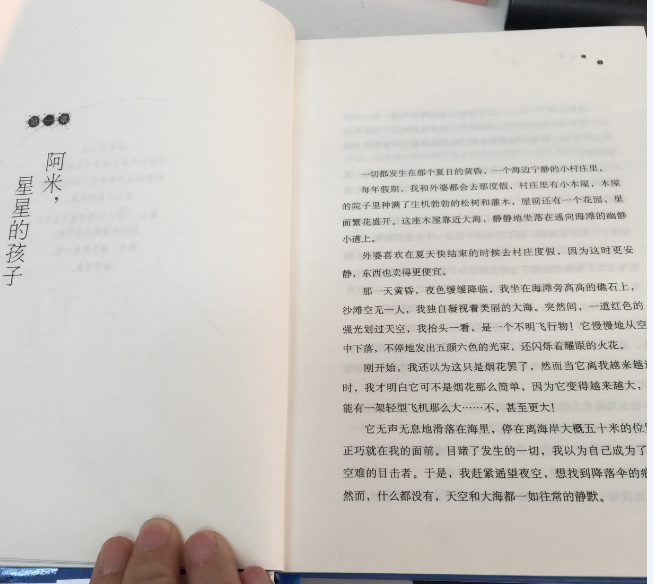 第一章
阿米，
星星的孩子
一切都发生在那个夏日的黄昏，一个海边宁静的小村庄里。
每年假期，我和外婆都会去那度假，村庄里有小木屋，木屋
的院子里种满了生机勃勃的松树和灌木，屋前还有一个花园，里
面繁花盛开。这座木屋靠近大海，静静地坐落在通向海滩的幽静
小道上。
外婆喜欢在夏天快结束的时候去村庄度假，因为这时更安
静，东西也卖得更便宜。
那一天黄昏，夜色缓缓降临，我坐在海滩旁高高的礁石上，
沙滩空无一人，我独自凝视着美丽的大海。突然间，一道红色的
强光划过天空，我抬头一看，是一个不明飞行物！它慢慢地从空
中下落，不停地发出五颜六色的光束，还闪烁着耀眼的火花。
刚开始，我还以为这只是烟花罢了，然而当它离我越来越近
时，我才明白它可不是烟花那么简单，因为它变得越来越大，
能有一架轻型飞机那么大……不，甚至更大！
它无声无息地滑落在海里，停在离海岸大概五十米的位
正巧就在我的面前。目睹了发生的一切，我以为自己成为了
空难的目击者。于是，我赶紧遥望夜空，想找到降落伞的
然而，什么都没有，天空和大海都一如往常的静默。